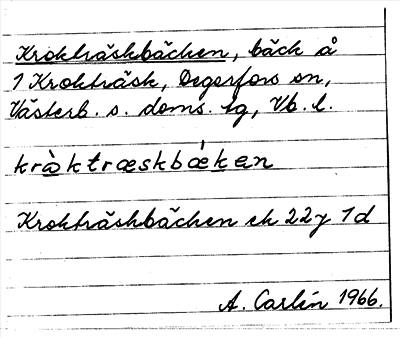 Krokträskbäcken, bäck å
1 Krokträsk, Degerfors sn,
Västerb. s. doms. tg, Vb. l.
kràktræskbǽken
Krokträskbäcken ek 22J 1d
A. Carlín 1966.